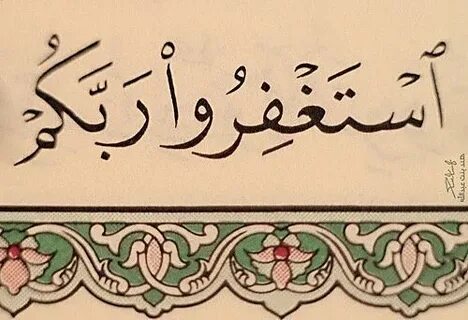 ٱسْتَغْفِرُوا۟ رَبَّكُمْ